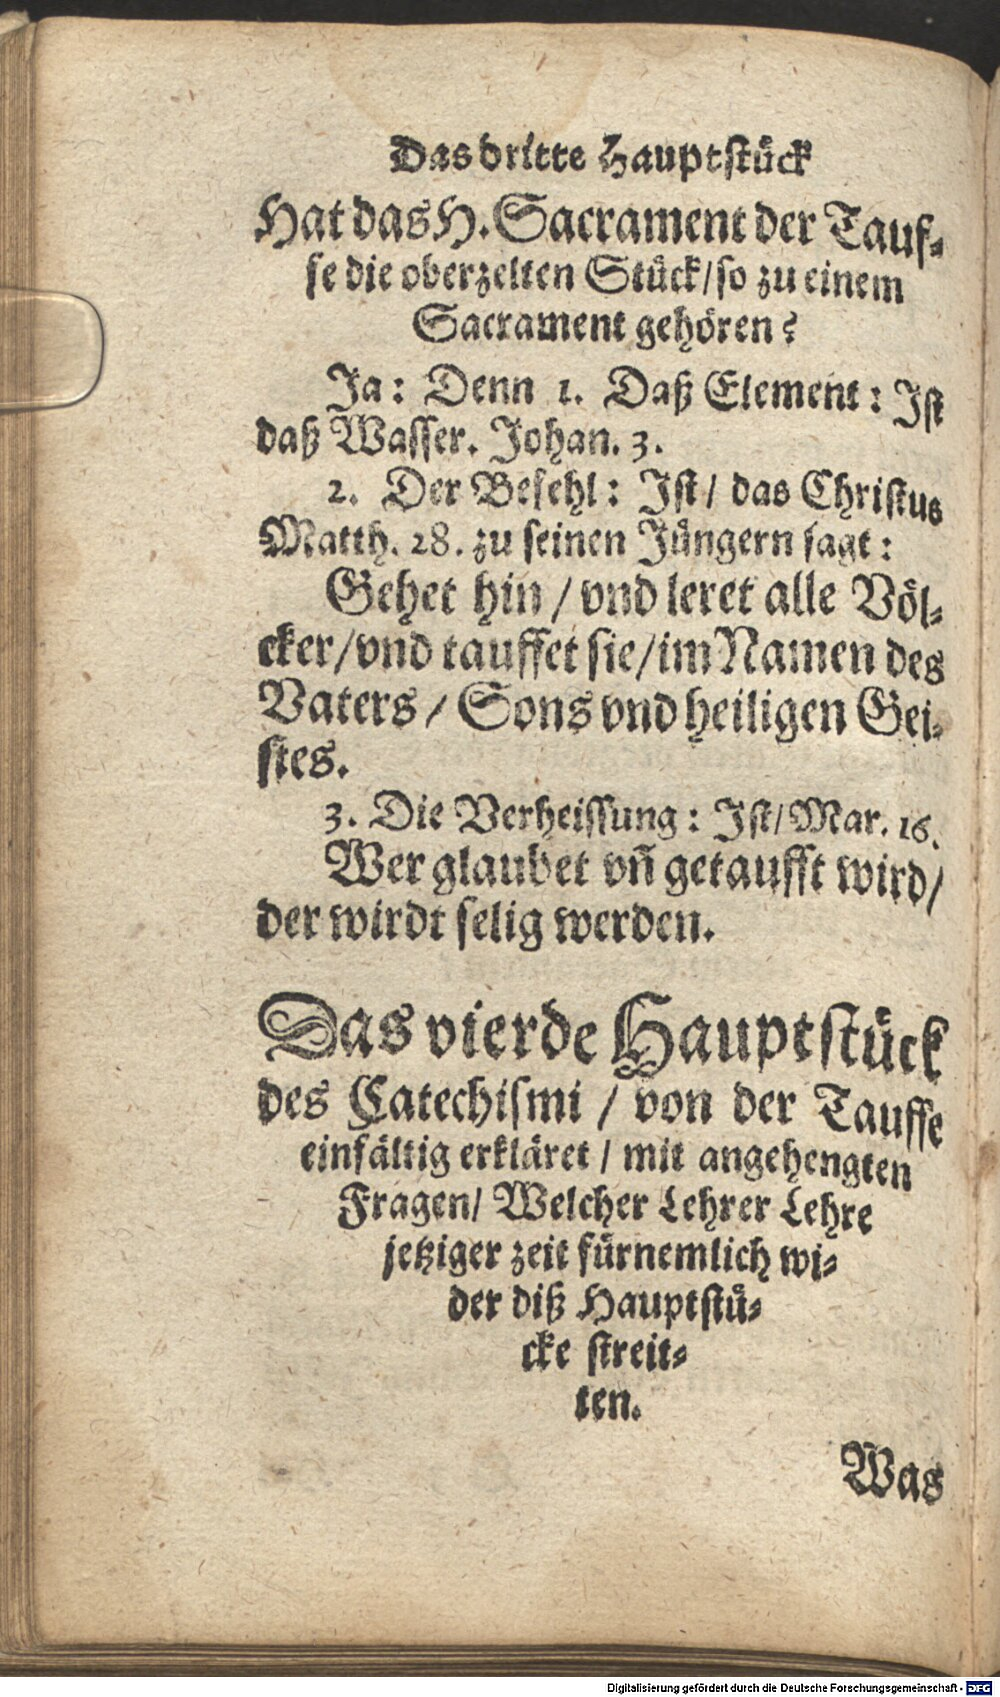 Das dritte Hauptstück
Hat das H. Sacrament der Tauf-
fe die oberzelten Stück/so zu einem
Sacrament gehören?
Ja: Denn 1. Daß Element: Ist
daß Wasser. Johan. 3.
2. Der Befehl: Ist/ das Christus
Matth. 28. zu seinen Jüngern sagt:
Gehet hin / vnd leret alle Völ-
cker/vnd tauffet sie/im Namen des
Vaters / Sons vnd heiligen Gei-
stes.
3. Die Verheissung: Ist/Mar. 16.
Wer glaubet vñ getaufft wird/
der wirdt selig werden.
Das vierde Hauptstück
des Catechismi / von der Tauffe
einfältig erkläret / mit angehengten
Fragen/ Welcher Lehrer Lehre
jetziger zeit fürnemlich wi-
der diß Hauptstü-
cke streit-
ten.
Was
Digitalisierung gefördert durch die Deutsche Forschungsgemeinschaft - DFG